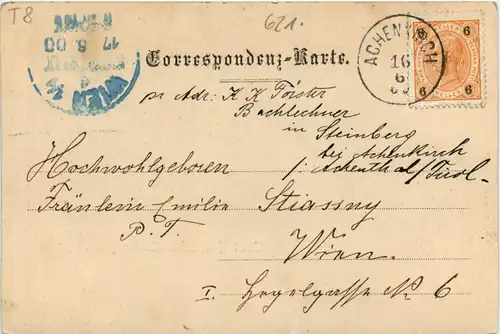 T8
621.
Correspondenz-Karte.
ACHENKIRCH
16
6
6
6
6
6
HELLER
WIEN
17 6.00
pr Adr: K K Förster
Bachlechner
in Steinberg
bei Achenkirch
/: Achenthal/Tirol-
Hochwohlgeboren
Fräulein Emilie Stiassny
P.T.
Wien.
I. Hegelgasse No 6